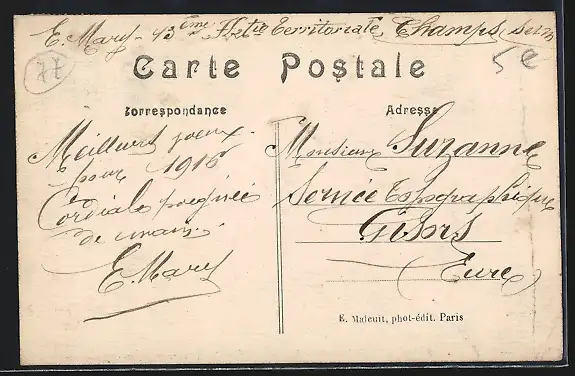 E. Mary - 43ème Art^ie Territoriale, Champs, Set M
77
5e
Carte Postale
Correspondance
Adresse
Meilleurs voeux
pour 1916
Cordiale poignée
de mains.
E. Mary
Monsieur Suzanne
Service Topographique
Gisors
(Eure)
E. Malcuit, phot-édit. Paris